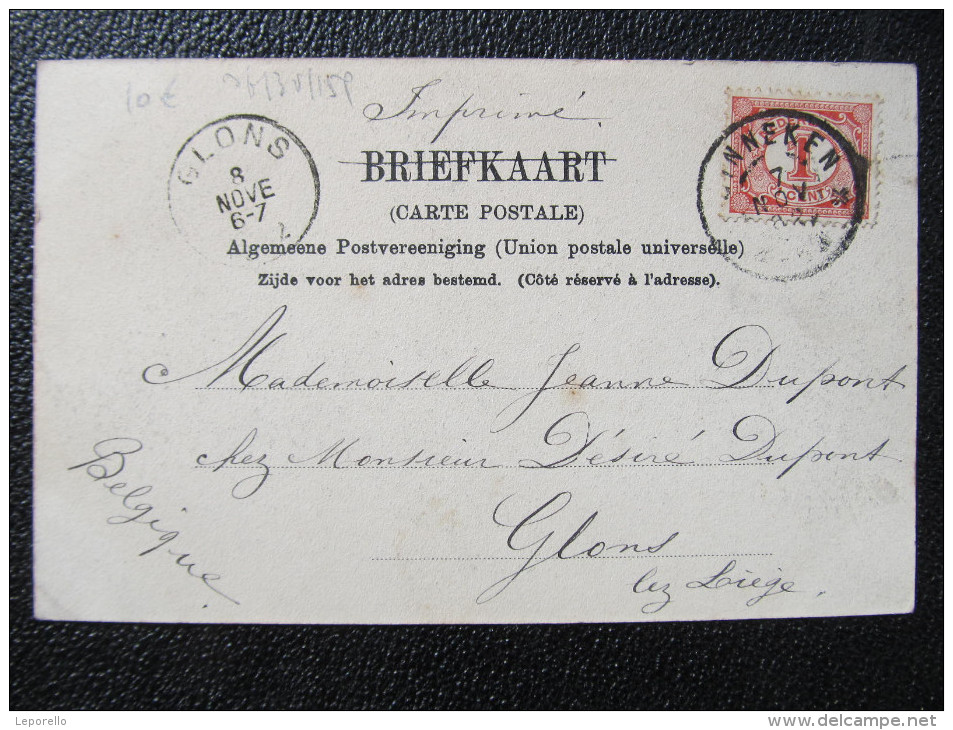 10€
Imprimé.
GLONS
8
NOVE
6-7
NNEKEN
7
NOV
1
CENT
BRIEFKAART
(CARTE POSTALE)
Algemeene Postvereeniging (Union postale universelle)
Zijde voor het adres bestemd. (Côté réservé à l'adresse).
Mademoiselle Jeanne Dupont
chez Monsieur Désiré Dupont
Glons
lez Liége.
Belgique.
Leporello
www.delcampe.net